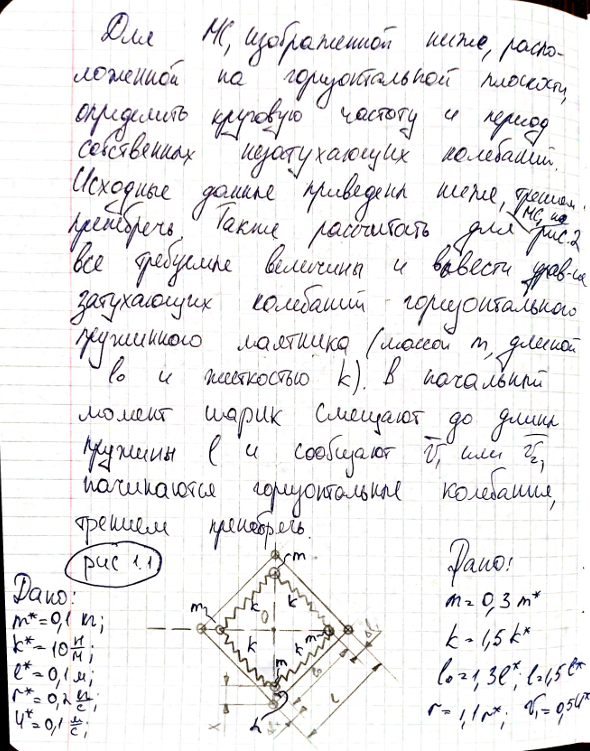 Для МС, изображенной ниже, распо-
ложенной на горизонтальной плоскости,
определить круговую частоту и период
собственных незатухающих колебаний.
Исходные данные приведены ниже, трением
пренебречь. Также рассчитать для МС, на рис.2
все требуемые величины и вывести урав-ия
затухающих колебаний горизонтального
пружинного маятника (массой m, длиной
l₀ и жесткостью k). В начальный
момент шарик смещают до длины
пружины l и сообщают v̅₁ или v̅₂,
начинаются горизонтальные колебания,
трением пренебречь.
рис 1.1
Дано:
m*=0,1 кг;
k*=10 Н/м;
l*=0,1 м;
r*=0,2 кг/с;
u*=0,1 м/с;
m
m
k
k
O
k
k
m
m
x
l
Дано:
m=0,3 m*
k=1,5 k*
l₀=1,3l*; l=1,5 l*
r=1,1 r*; v₁=0,5u*